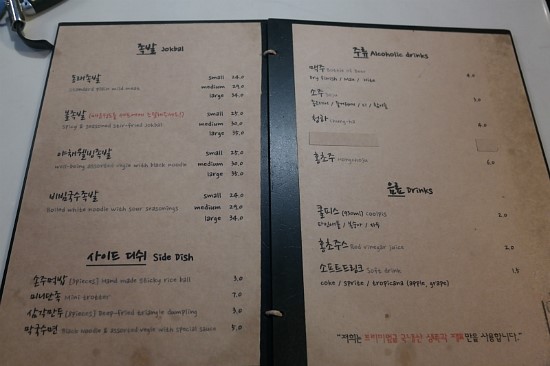 족발 Jokbal
동래족발 small 24.0
Standard plain mild meat medium 29.0
large 34.0
불족발 small 25.0
Spicy & seasoned stir-fried Jokbal medium 30.0
large 35.0
야채웰빙족발 small 25.0
well-being assorted vegie with black noodle medium 30.0
large 35.0
비빔국수족발 small 24.0
Boiled white noodle with sour seasonings medium 29.0
large 34.0
사이드 디쉬 Side Dish
손주먹밥 [3pieces] Hand made sticky rice ball 3.0
미니족 Mini trotter 7.0
삼각만두 [3pieces] Deep-fried triangle dumpling 3.0
막국수면 Black noodle & assorted vegie with special sauce 5.0
주류 Alcoholic drinks
맥주 Bottle of Beer
Dry finish / max / hite 4.0
소주 Soju 3.0
청하 Chung-ha 4.0
홍초주 Hongchoju 6.0
음료 Drinks
쿨피스 (930ml) Coolpis 2.0
홍초주스 Red vinegar juice 2.0
소프트드링크 Soft drink 1.5
coke / sprite / tropicana (apple, grape)
"저희는 프리미엄급 국내산 생족과 만을 사용합니다."